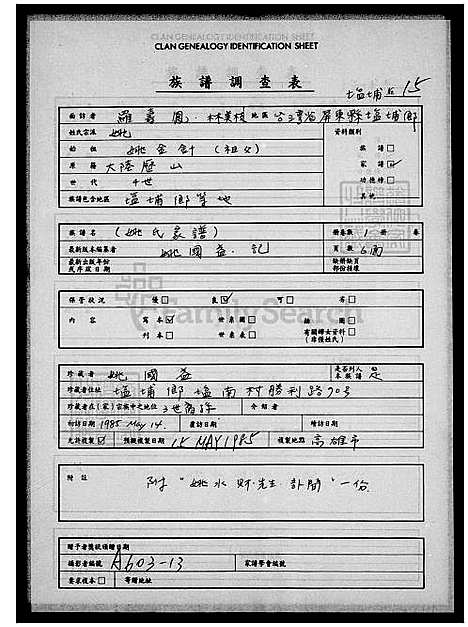 CLAN GENEALOGY IDENTIFICATION SHEET
族譜調查表
塩埔 15
面訪者 羅嘉 林美枝 地區 台灣省屏東縣塩埔鄉
姓氏宗派 姚 資料類別
始祖 姚金針(祖父) 族譜□
原籍 大陸歷山 家譜☑
世代 4世 功德榜□
族譜包含地區 塩埔鄉等地 其他
族譜名 (姚氏家譜) 冊卷數 1 冊 卷
最新版本編纂者 姚國益 記 頁數 6面
最新出版年份或序跋日期 缺冊缺頁部份損壞
保管狀況 優□ 良☑ 可□ 劣□
內容 寫本☑ 世系圖□ 插圖□
刊本□ 世系表□ 有關婦女資料□(非僅姓氏)
FamilySearch
珍藏者 姚國益 是否列入本族譜 是
珍藏者住址 塩埔鄉塩南村勝利路70号
珍藏者在(家)宗族中之地位 3世裔孫 介紹者
初訪日期 1985 May 14. 覆訪日期 續訪日期
允許複製☑ 預擬複製日期 15 MAY 1985 複製地點 高雄市
附註 附"姚水財先生訃聞"一份
贈予者獎狀頒贈日期
攝影者編號 A603-13 家譜學會編號
要求複本□ 寄贈地址